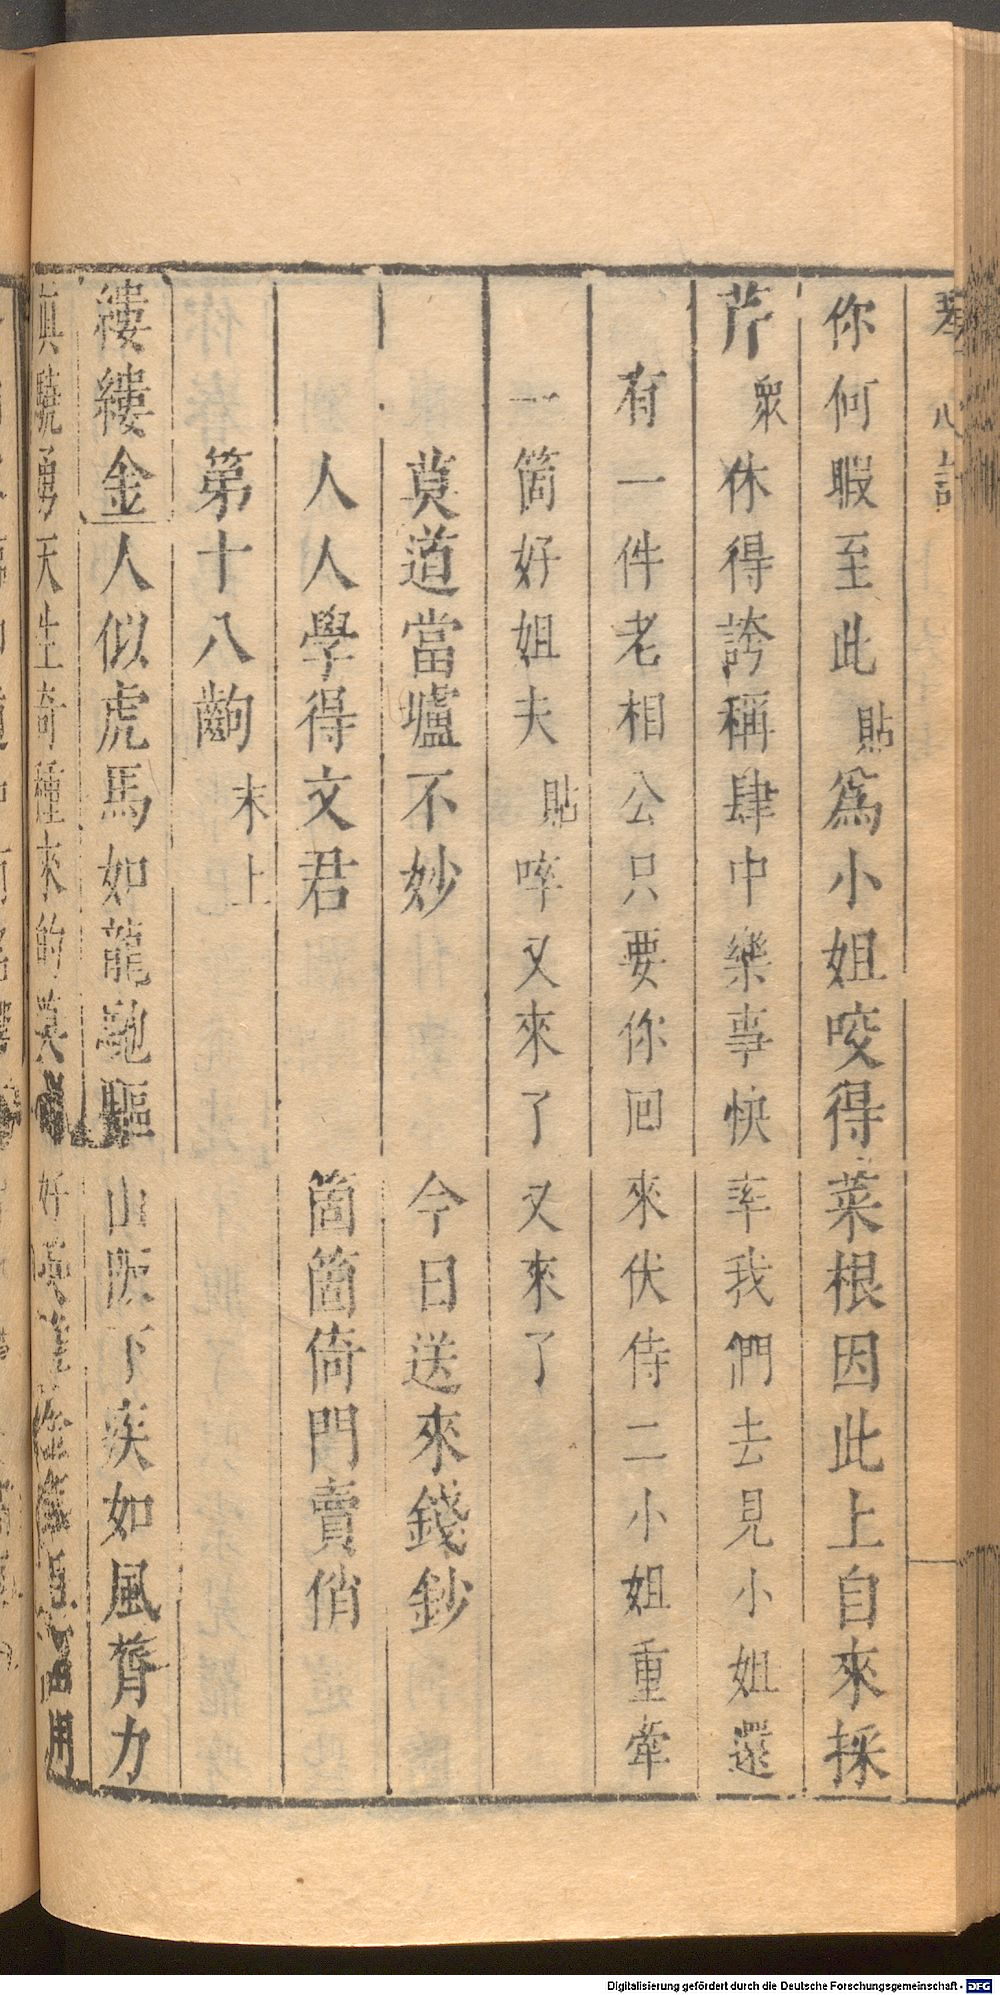 你何暇至此貼為小姐咬得菜根因此上自來採
芹衆休得誇稱肆中樂事快率我們去見小姐還
有一件老相公只要你回來伏侍二小姐重牽
一箇好姐夫貼啐又來了又來了
莫道當壚不妙今日送來錢鈔
人人學得文君箇箇倚門賣俏
第十八齣末上
縷縷金人似虎馬如龍馳驅山阪下疾如風膂力
真驍勇天生奇種來的莫好
Digitalisierung gefördert durch die Deutsche Forschungsgemeinschaft - DFG